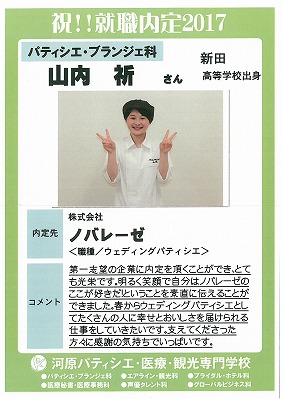 祝!!就職内定2017
パティシエ・ブランジェ科
山内 祈 さん
新田
高等学校出身
内定先
株式会社
ノバレーゼ
<職種/ウェディングパティシエ>
コメント
第一志望の企業に内定を頂くことができ、とて
も光栄です。明るく笑顔で自分はノバレーゼの
ここが好きだということを素直に伝えることが
できました。春からウェディングパティシエとし
てたくさんの人に幸せとおいしさを届けられる
仕事をしていきたいです。支えてくださった
方々に感謝の気持ちでいっぱいです。
河原パティシエ・医療・観光専門学校
●パティシエ・ブランジェ科 ●エアライン・観光科 ●ブライダル・ホテル科
●医療秘書・医療事務科 ●声優タレント科 ●グローバルビジネス科